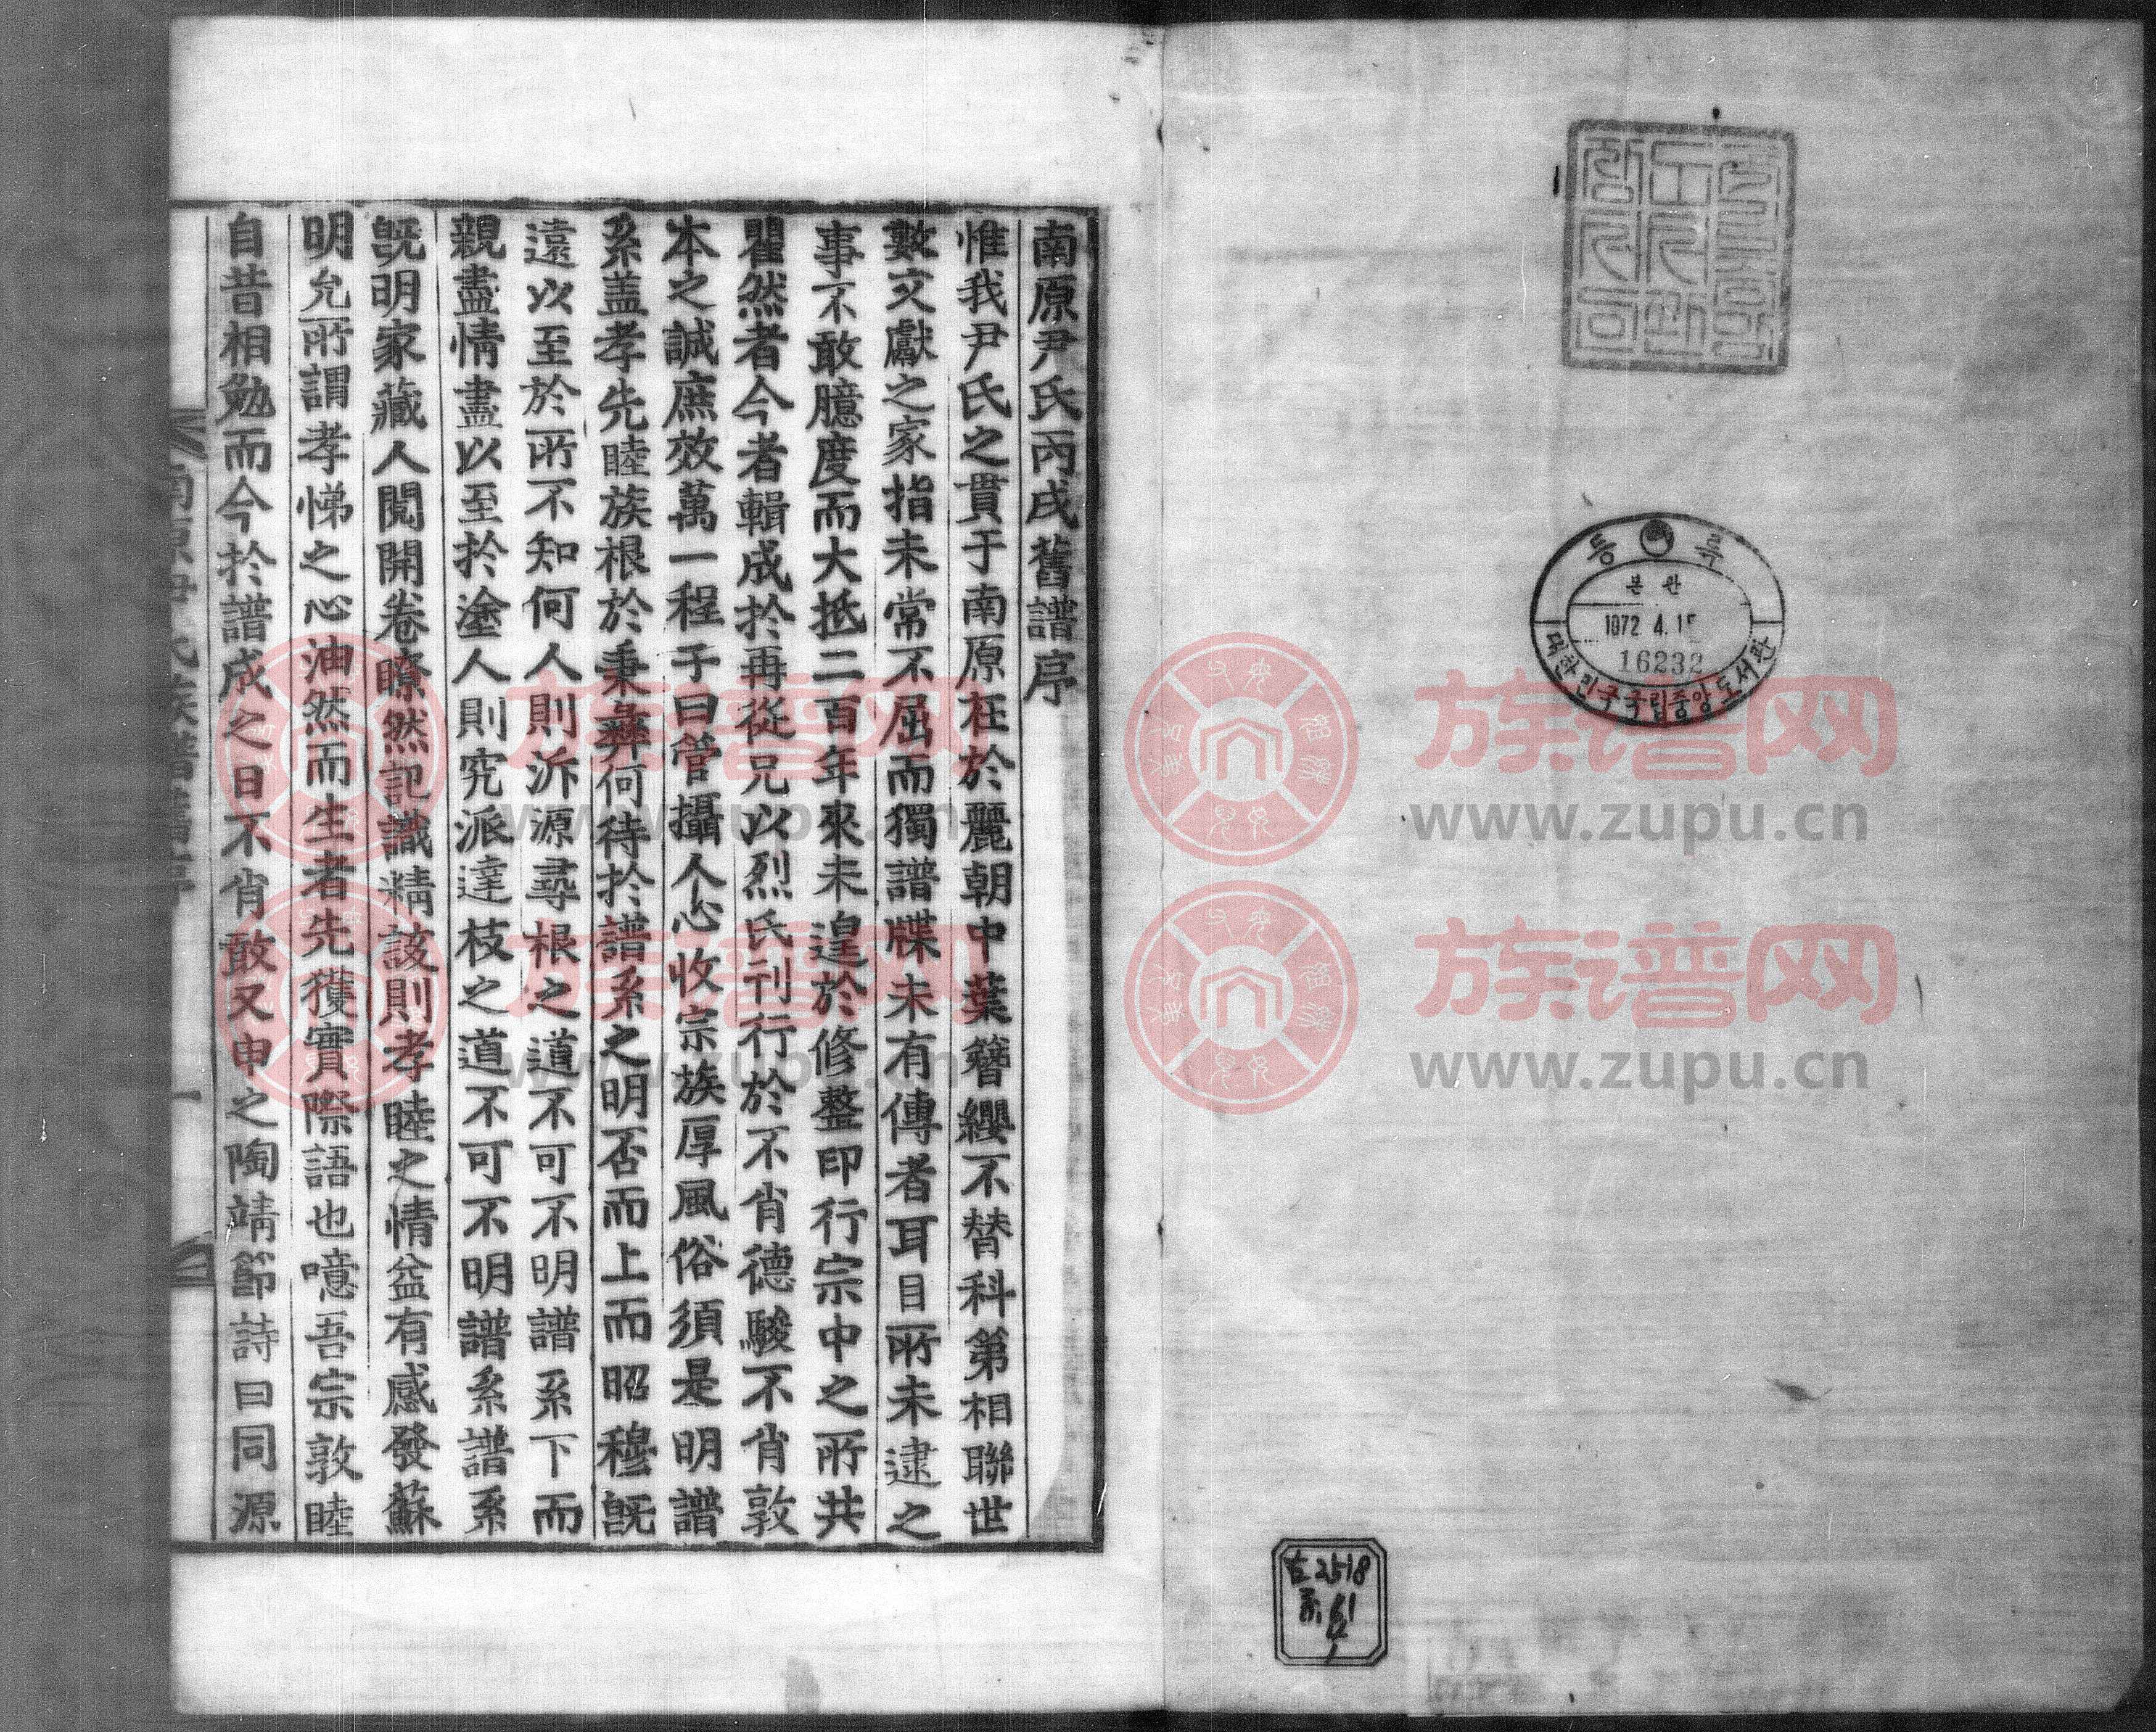 등록
본관
1972 4. 15
16232
대한민국국립중앙도서관
古2518
61
4
1
南原尹氏丙戌舊譜序
惟我尹氏之貫于南原在於麗朝中葉簪纓不替科第相聯世
數文獻之家指未常不屈而獨譜牒未有傳者耳目所未逮之
事不敢臆度而大抵二百年來未遑於修整印行宗中之所共
瞿然者今者輯成於再從兄以烈氏刊行於不肖德駿不肖敦
本之誠庶效萬一程子曰管攝人心收宗族厚風俗須是明譜
系盖孝先睦族根於秉彝何待於譜系之明否而上而昭穆旣
遠以至於所不知何人則泝源尋根之道不可不明譜系下而
親盡情盡以至於塗人則究派達枝之道不可不明譜系譜系
旣明家藏人閱開卷瞭然記識精該則孝睦之情益有感發蘇
明允所謂孝悌之心油然而生者先獲實際語也噫吾宗敦睦
自昔相勉而今於譜成之日不肖敢又申之陶靖節詩曰同源
南原尹氏族譜舊序
一
族谱网
www.zupu.cn
族谱网
www.zupu.cn
族谱网
www.zupu.cn
族谱网
www.zupu.cn